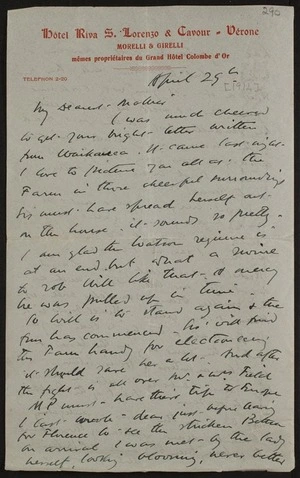 290
Hôtel Riva S. Lorenzo & Cavour - Vérone
MORELLI & GIRELLI
mêmes propriétaires du Grand Hôtel Colombe d'Or
TELEFON 2-20
April 29th
My Dearest Mother
I was much cheered
to get your bright letter written
from Waikanaea. It came last night.
I love to picture you all at the
Farm in those cheerful surroundings
Sis must have spread herself out
on the house it sounds so pretty.
I am glad the Watson regime is
at an end but what a swine
to rob Will like that. A mercy
he was pulled up in time.
So Will is to stand again & the
fun has commenced - he will find
the Farm handy for electioneering
it should save her a lot. And after
the fight is all over Mr & Mrs Field
M.P. must have their trip to Europe
I last wrote dear just before leaving
for Florence to see the stricken
on arrival I was met by the lady
herself, looking blooming, never better